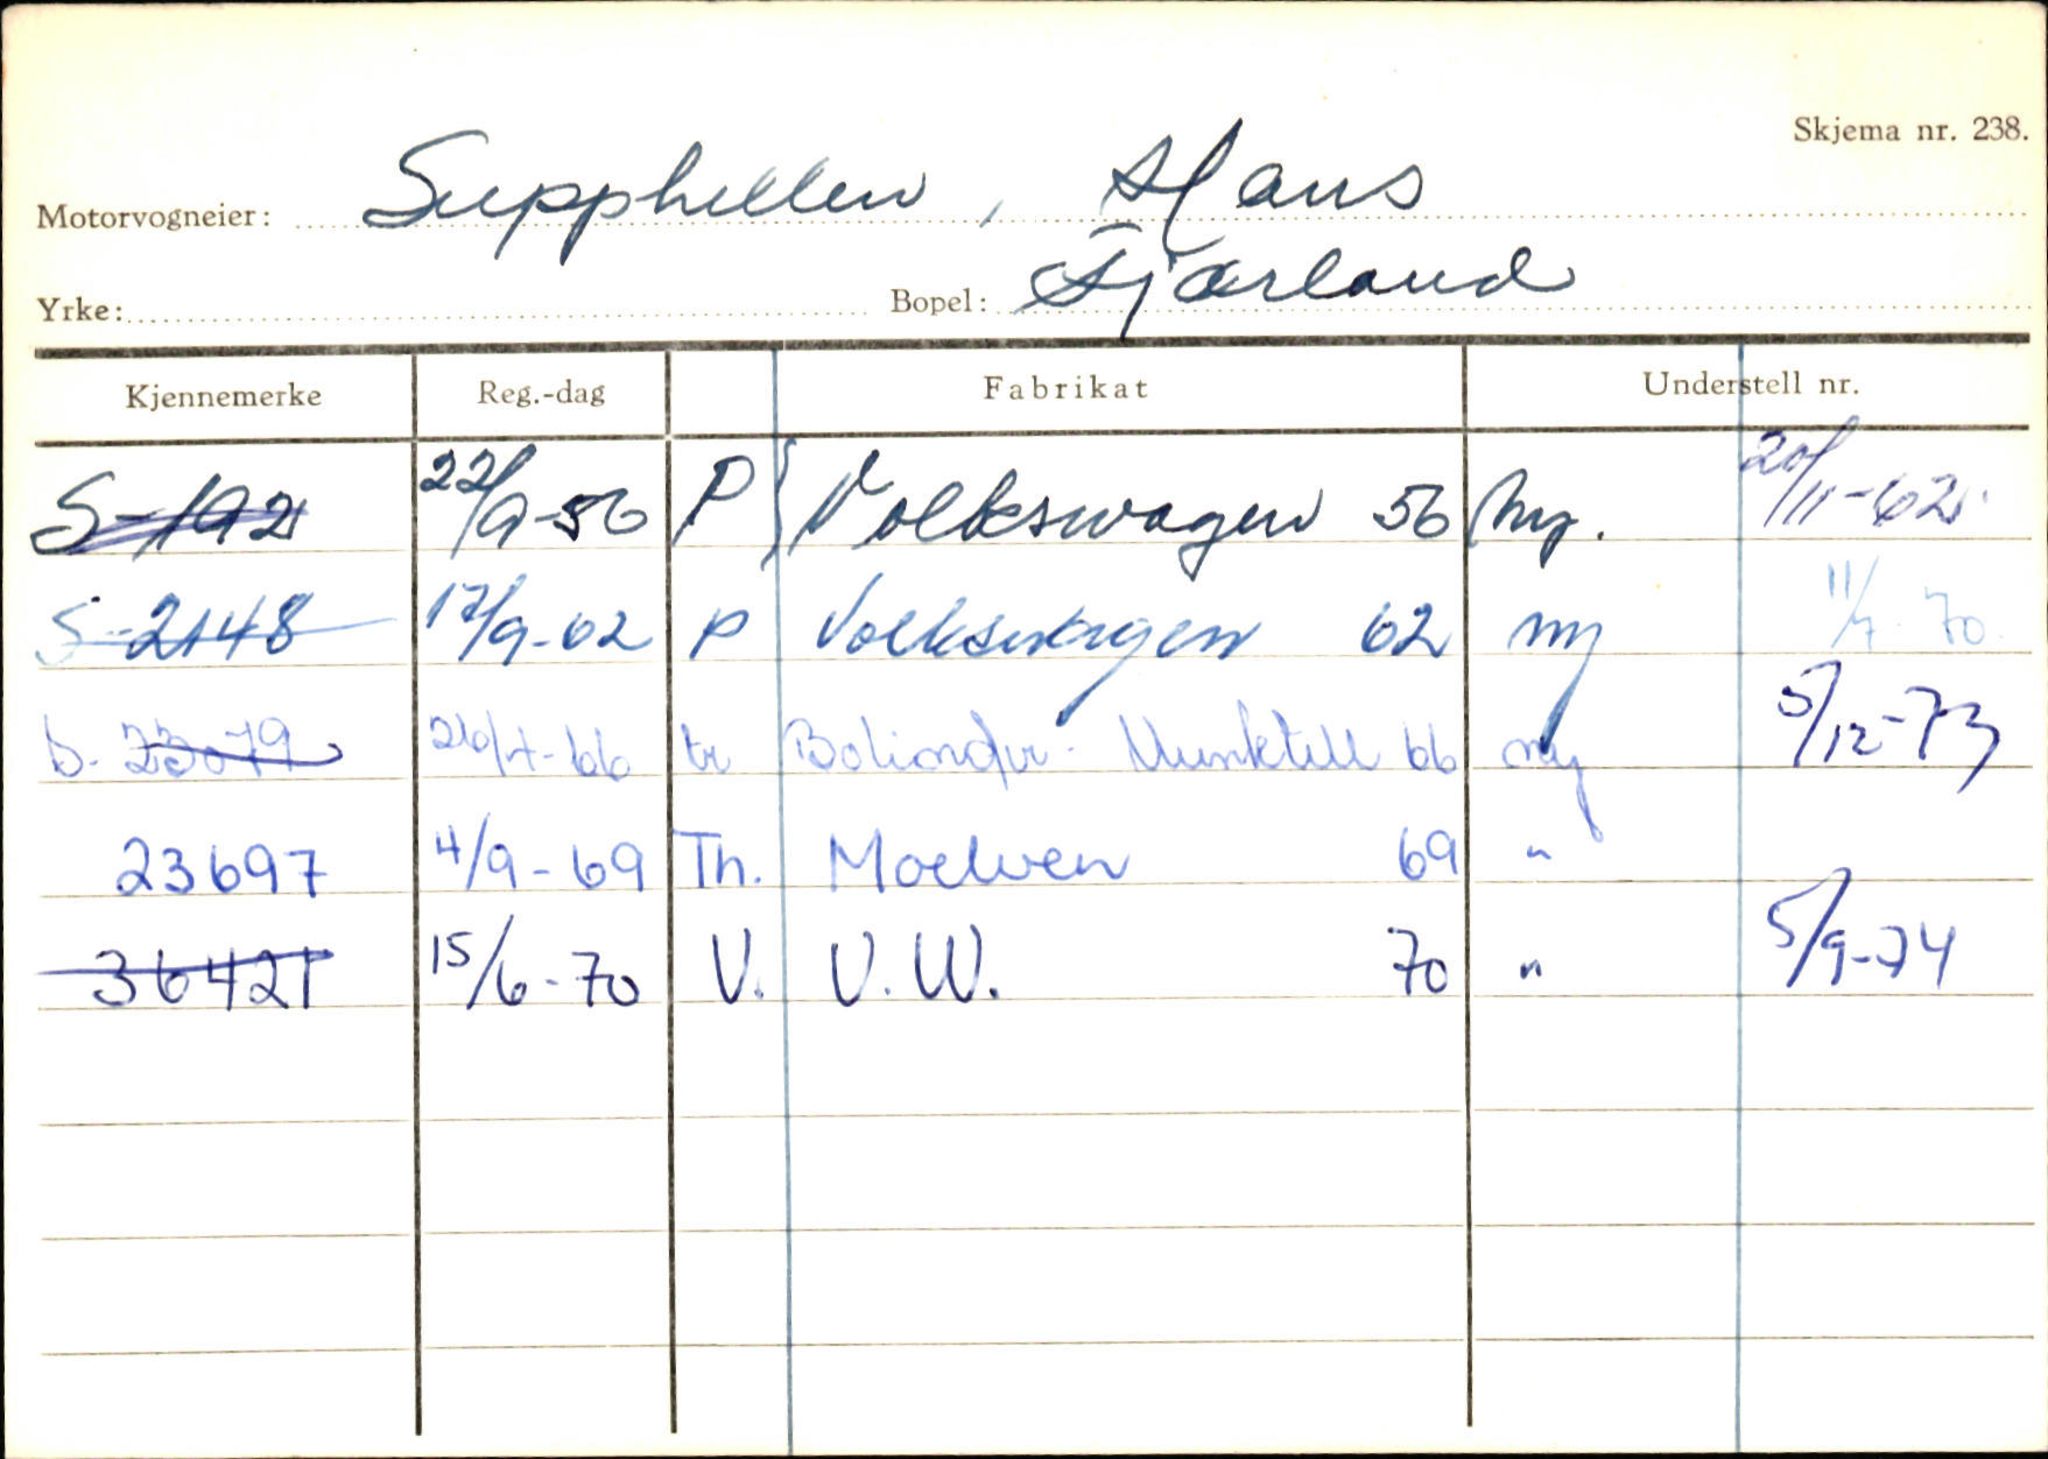 Skjema nr. 238.
Motorvogneier: Supphellen, Hans
Yrke: Bopel: Fjærland
Kjennemerke Reg.-dag Fabrikat Understell nr.
S-192 22/9-56 P Volkswagen 56 Ny. 20/11-62
S-2148 17/9-62 P Volkswagen 62 ny 11/7-70
S-23079 26/4-66 tr Bolinder-Munktell 66 ny 5/12-73
23697 4/9-69 Th. Moelven 69 "
36421 15/6-70 V. V.W. 70 " 5/9-74